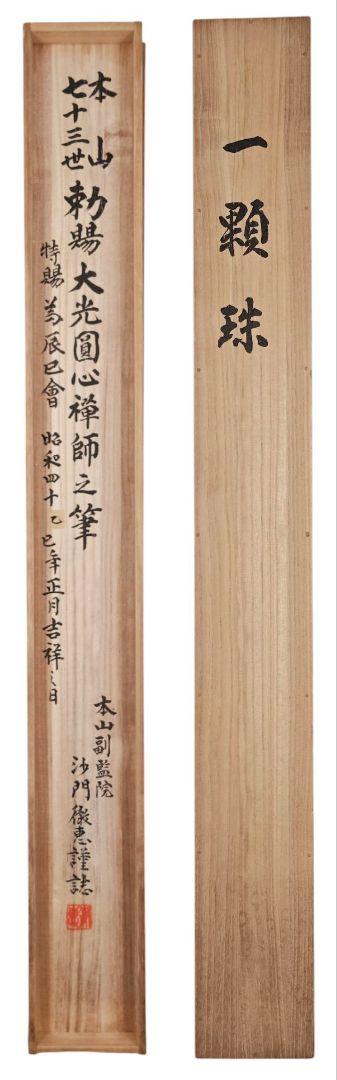 一顆珠
本山
七十三世
勅賜大光圓心禅師之筆
特賜 為辰巳會 昭和四十乙巳年正月吉祥之日
本山副監院
沙門 恵謹誌